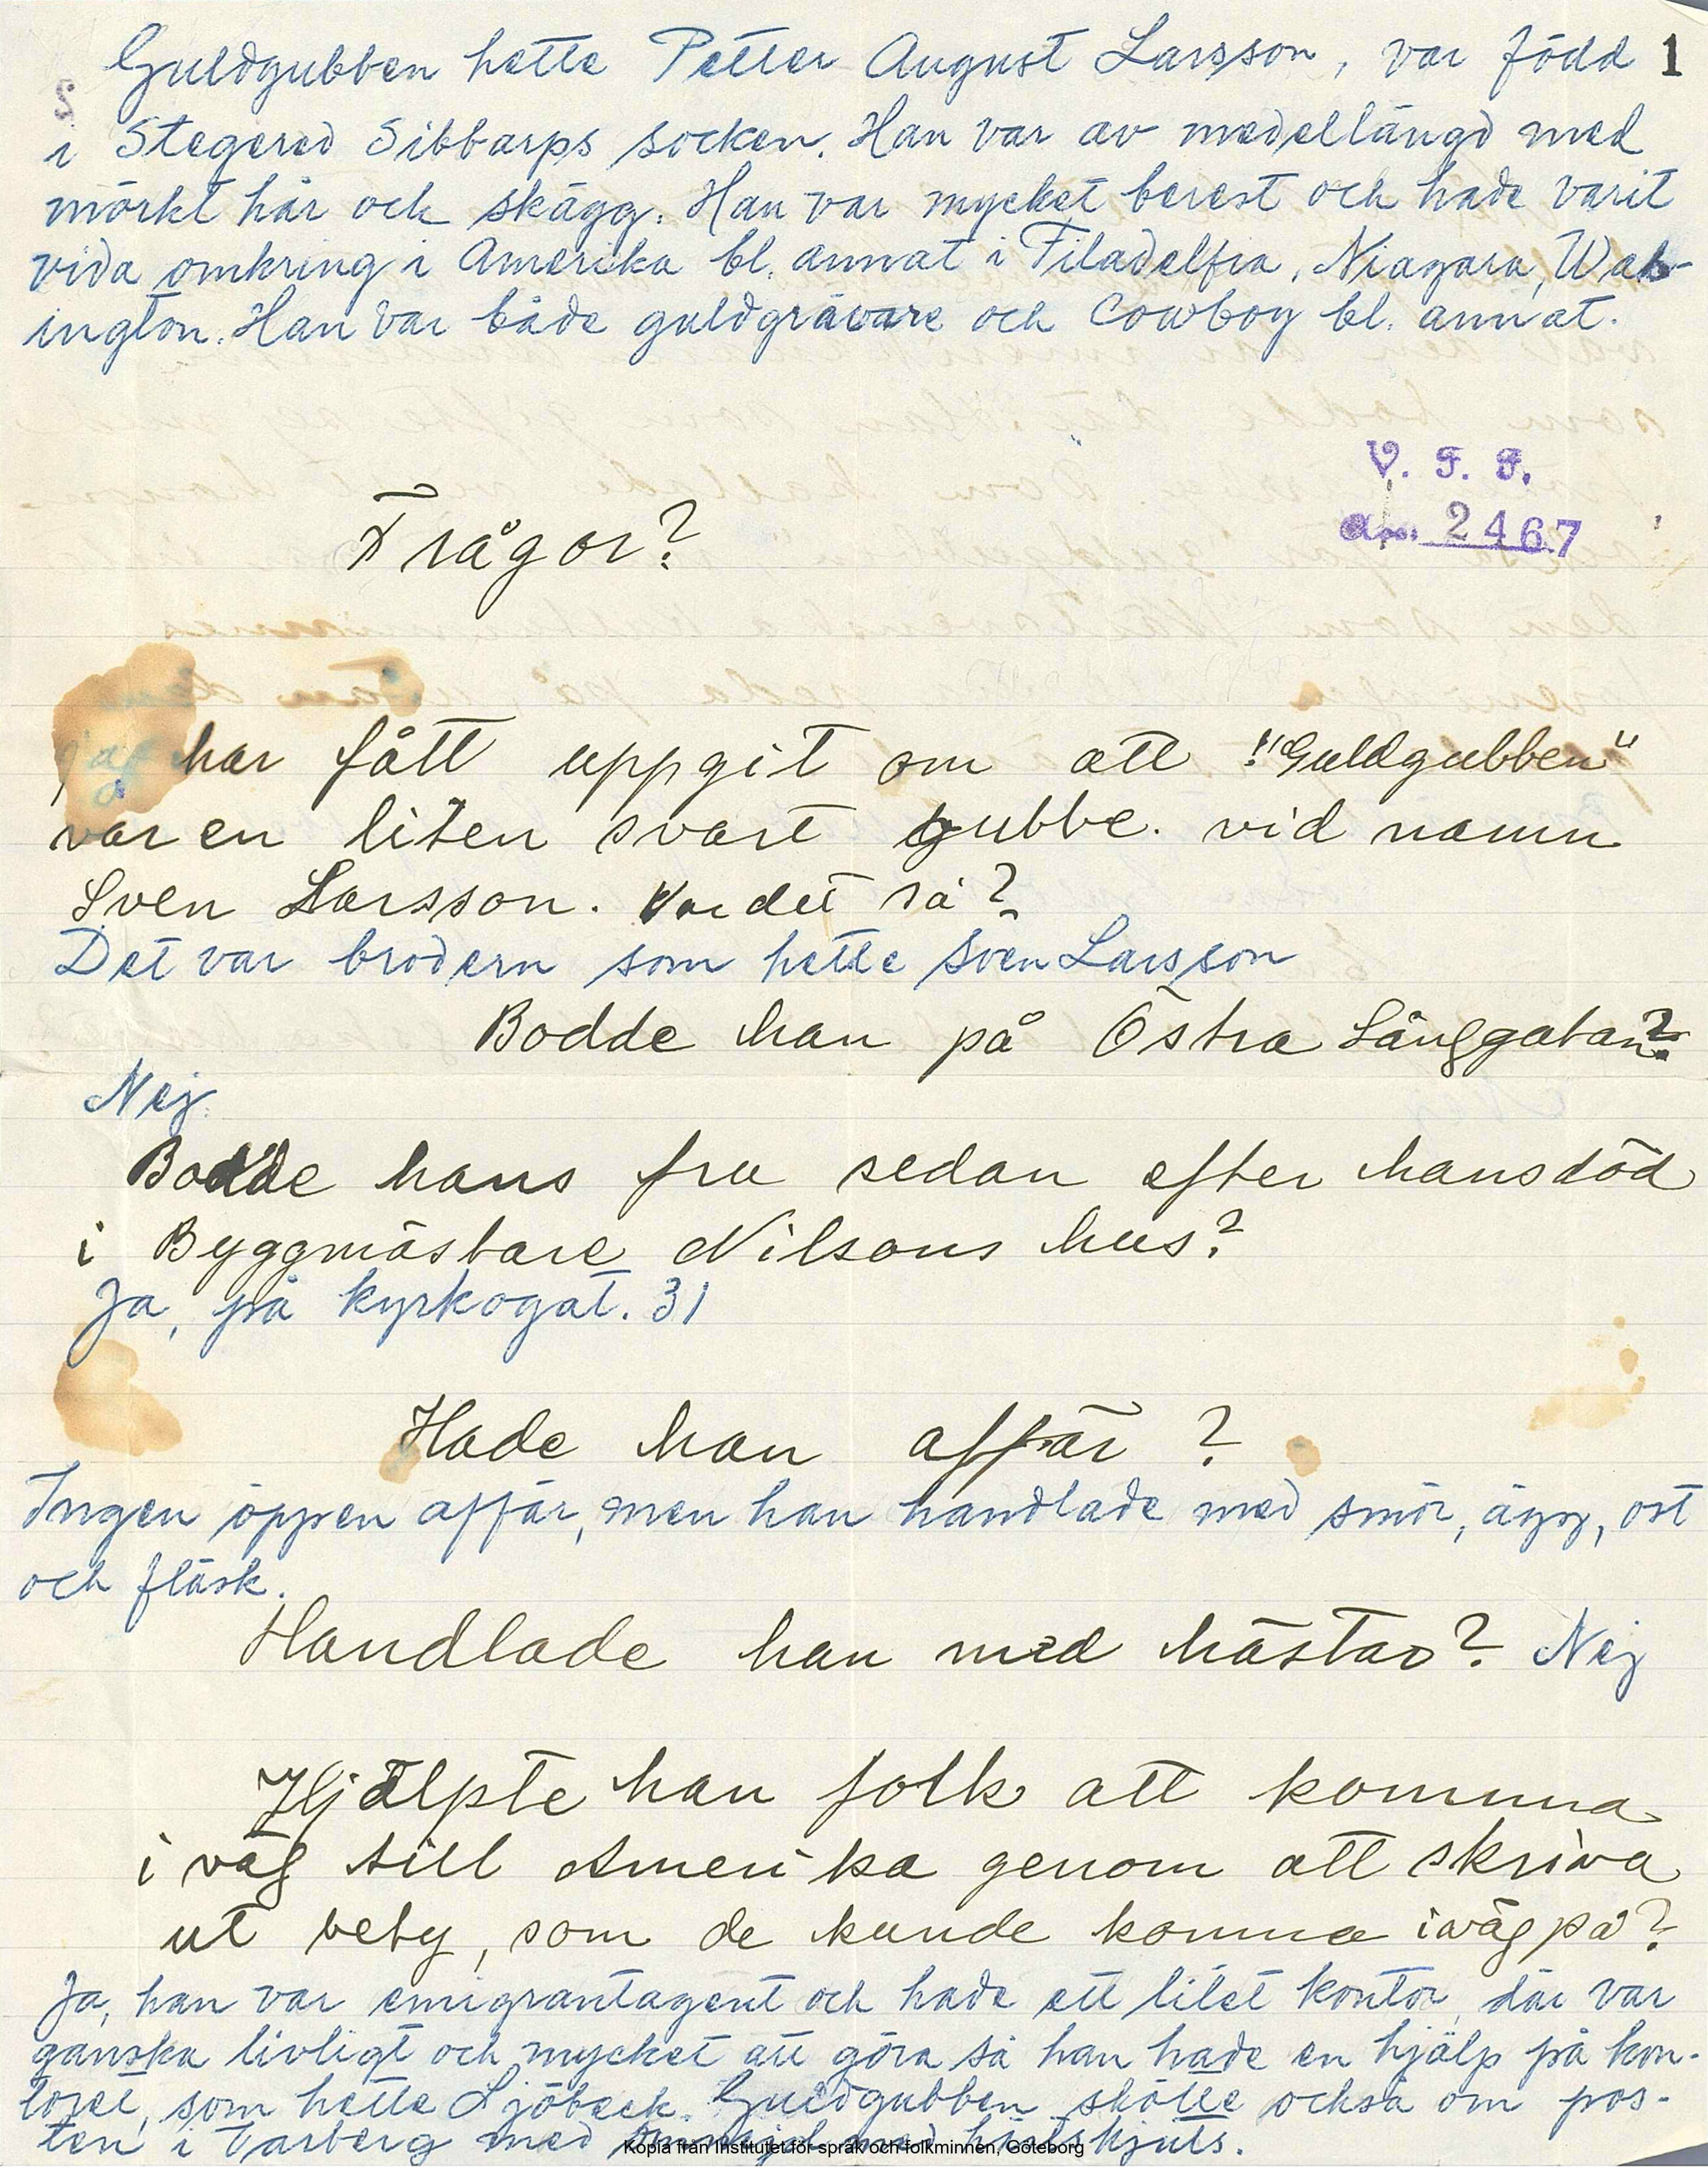 Guldgubben hette Petter August Larsson, var född 1
i Stegered Sibbarps socken. Han var av medellängd med
mörkt hår och skägg. Han var mycket berest och hade varit
vida omkring i Amerika bl. annat i Filadelfia, Niagara, Wash-
ington. Han var både guldgrävare och Cowboy bl. annat.
V. F. F.
acc. 2467
Frågor?
Jag har fått uppgit om att "Guldgubben"
var en liten svart gubbe. vid namn
Sven Larsson. Var det så?
Det var brodern som hette Sven Larsson
Bodde han på Östra Långgatan?
Nej.
Bodde hans fru sedan efter hans död
i Byggmästare Nilsons hus?
Ja, på kyrkogat. 31
Hade han affär?
Ingen öppen affär, men han handlade med smör, ägg, ost
och fläsk.
Handlade han med hästar? Nej
Hjälpte han folk att komma
i väg till Amerika genom att skriva
ut bety, som de kunde komma iväg på?
Ja, han var emigrantagent och hade ett litet kontor, där var
ganska livligt och mycket att göra så han hade en hjälp på kon-
toret, som hette Sjöbeck. Guldgubben skötte också om pos-
ten i Varberg med hästskjuts.
Kopia från Institutet för språk och folkminnen, Göteborg